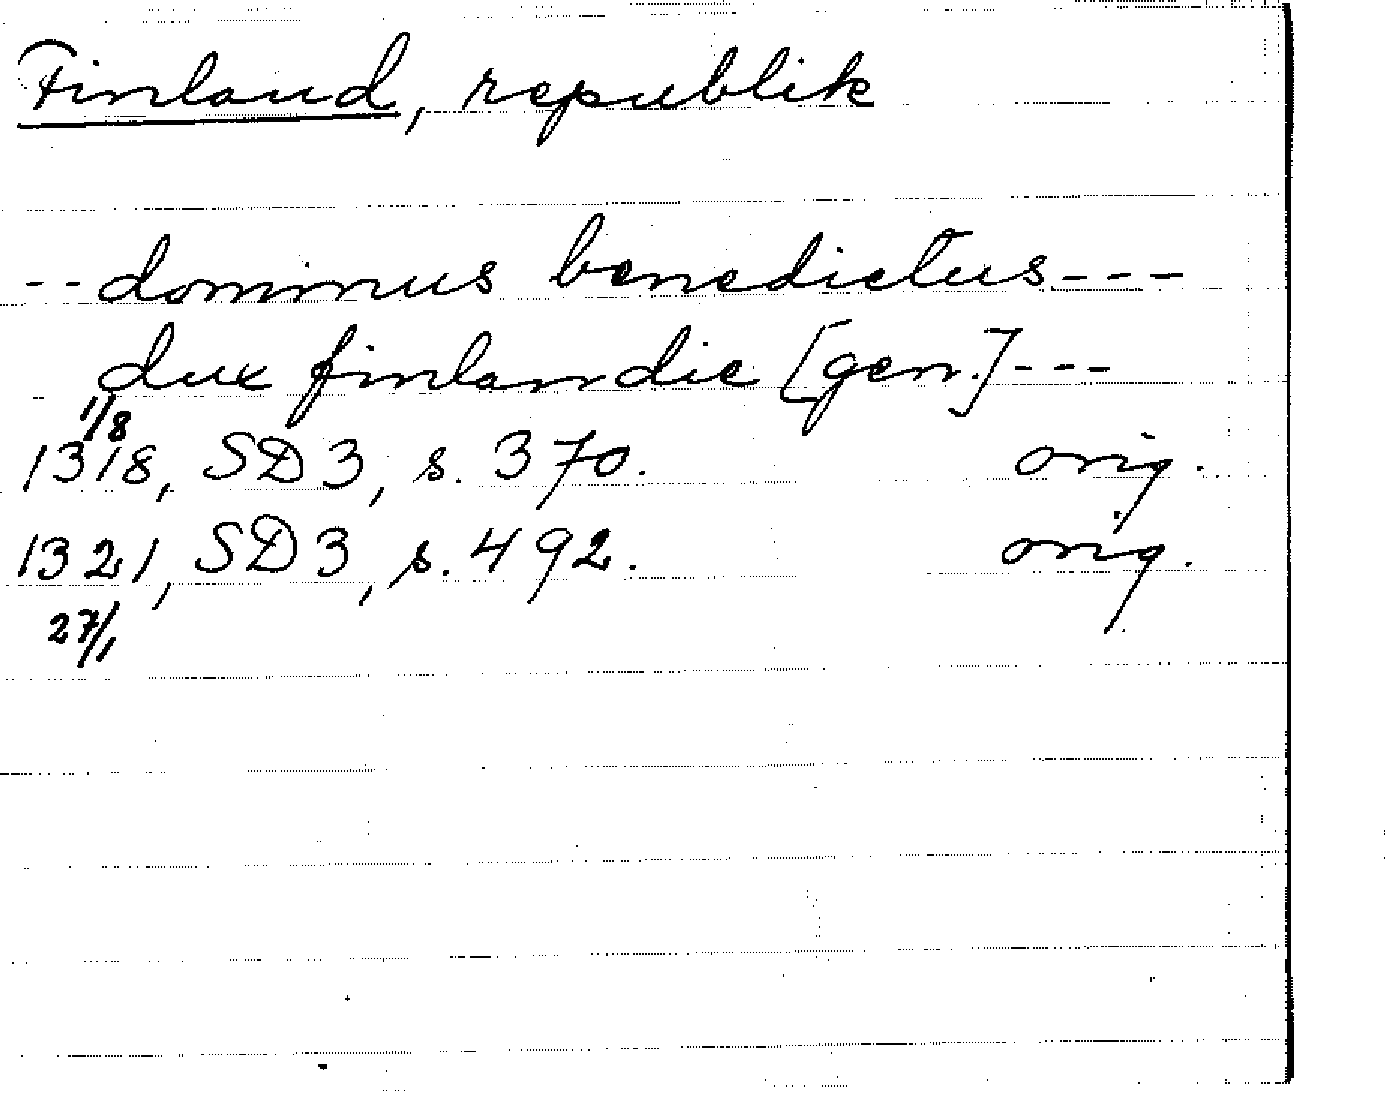 Finland, republik
--dominus benedictus---
dux finlandie [gen.]---
1/8
1318, SD3, s. 370. orig.
1321, SD3, s. 492. orig.
27/1